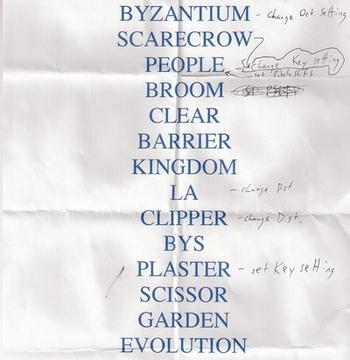 BYZANTIUM - change Oct. Setting
SCARECROW
PEOPLE - change Key setting
- set Pitch Shift
BROOM
CLEAR
BARRIER
KINGDOM
LA - change Dist
CLIPPER - change Dist.
BYS
PLASTER - set Key setting
SCISSOR
GARDEN
EVOLUTION